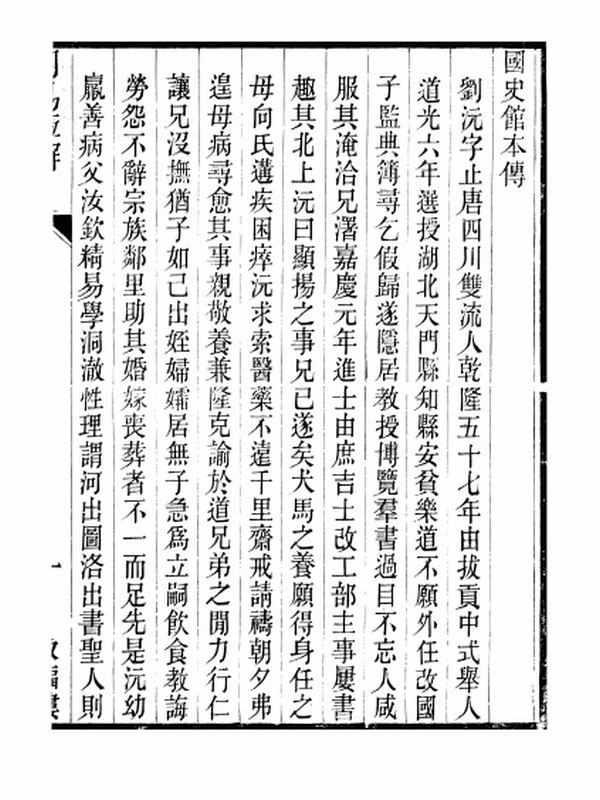 國史館本傳
劉沅字止唐四川雙流人乾隆五十七年由拔貢中式舉人
道光六年選授湖北天門縣知縣安貧樂道不願外任改國
子監典簿尋乞假歸遂隱居教授博覽羣書過目不忘人咸
服其淹洽兄濖嘉慶元年進士由庶吉士改工部主事屢書
趣其北上沅曰顯揚之事兄已遂矣犬馬之養願得身任之
母向氏遘疾困瘁沅求索醫藥不遠千里齋戒請禱朝夕弗
遑母病尋愈其事親敬養兼隆克諭於道兄弟之閒力行仁
讓兄沒撫猶子如己出姪婦孀居無子急爲立嗣飲食教誨
勞怨不辭宗族鄰里助其婚嫁喪葬者不一而足先是沅幼
羸善病父汝欽精易學洞澈性理謂河出圖洛出書聖人則
一